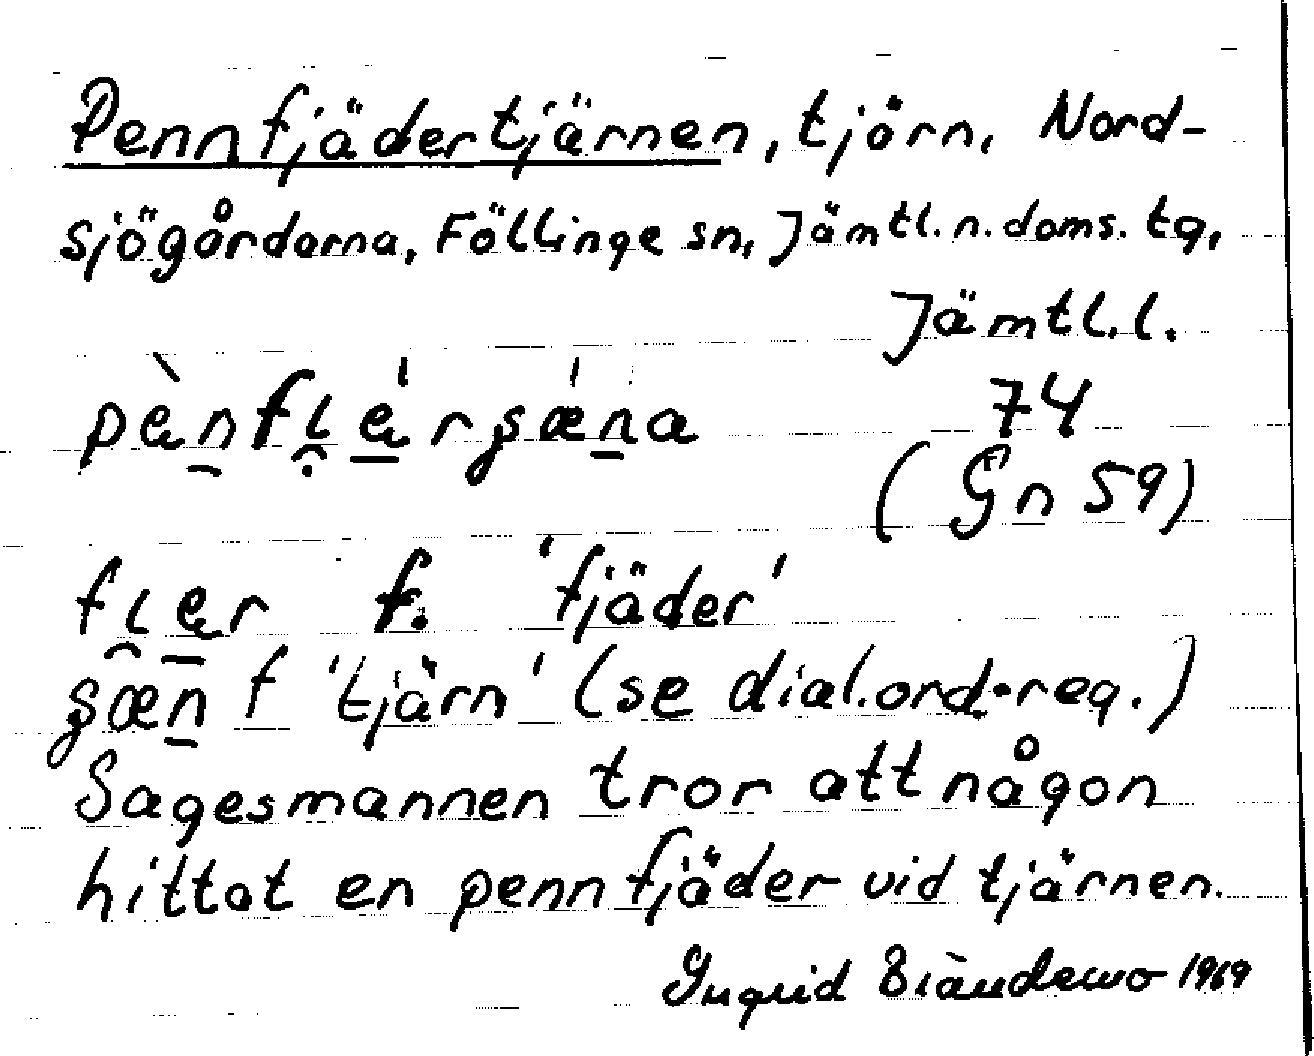 Pennfjädertjärnen, tjörn, Nord-
sjögårdarna, Föllinge sn, Jämtl. n. doms. tg,
Jämtl. l.
74
(Gn 59)
f. 'fjäder'
f 'tjärn' (se dial.ord-reg.)
Sagesmannen tror att någon
hittat en pennfjäder vid tjärnen.
Ingrid 1969